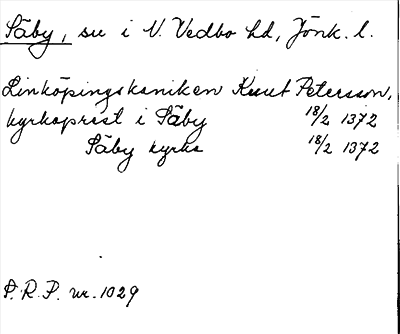 Säby, su i N. Vedbo hd, Jönk. l.
Linköpingskaniken Knut Petersson,
kyrkoprest i Säby 18/2 1372
Säby kyrka 18/2 1372
P. R. P. nr. 1029